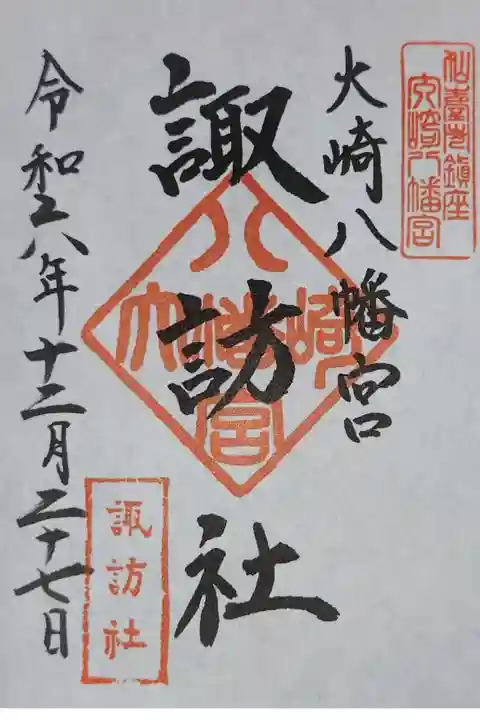 仙臺市鎮座
大崎八幡宮
大崎八幡宮
諏訪社
大崎八幡宮
令和六年十二月二十七日
諏訪社